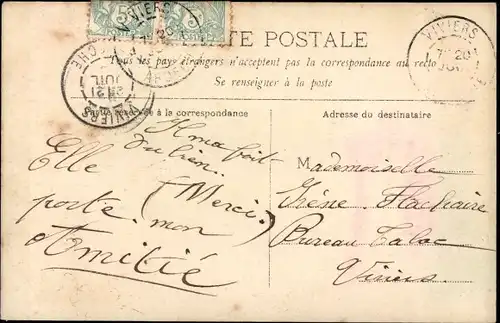 VIVIERS
VIVIERS
CARTE POSTALE
Tous les pays étrangers n'acceptent pas la correspondance au recto
Se renseigner à la poste
21
JUIL
VIVIERS
Partie réservée à la correspondance
Adresse du destinataire
Il m'a fait
du bien.
Elle (Merci.)
porte mon
Amitié
Mademoiselle
Irène
Bureau Tabac
Viviers